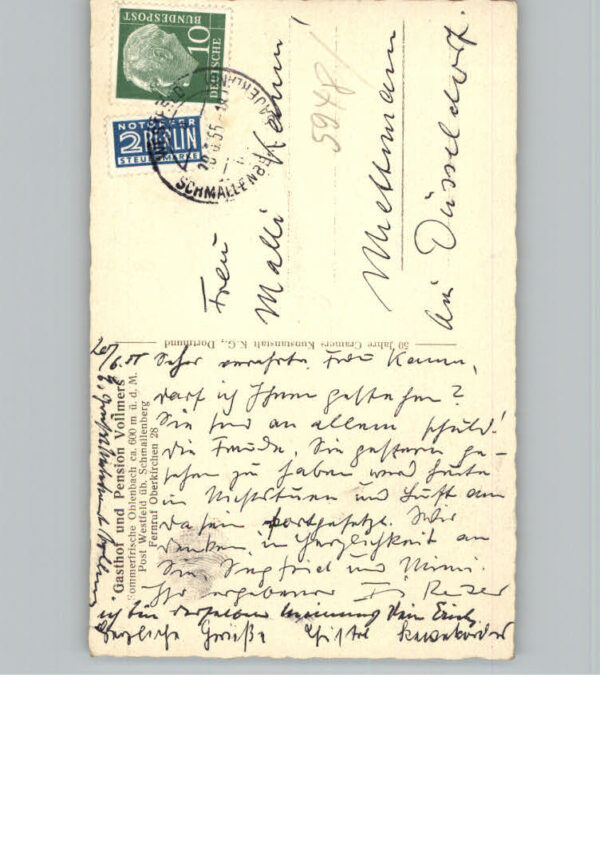 DEUTSCHE
BUNDESPOST
10
NOTOPFER
2 BERLIN
STEUERMARKE
SCHMALLENBERG
Frau
Malli Kamm
5948/
Mettmann
bei Düsseldorf.
50 Jahre Cramers Kunstanstalt K.G., Dortmund
Gasthof und Pension Vollmers
Sommerfrische Ohlenbach ca. 600 m ü. d. M.
Post Westfeld üb. Schmallenberg
Fernruf Oberkirchen 28
Sehr verehrte Frau Kamm,
darf ich Ihnen gestehen?
Sie sind an allem schuld!
Die Freude, Sie gestern ge-
sehen zu haben wird heute
in und Lust am
Da sein fortgesetzt. Wir
denken in Herzlichkeit an
Sie, Siegfried und Mimi.
Ihr ergebener
ich bin derselben Meinung Dein Erich
Herzliche Grüße